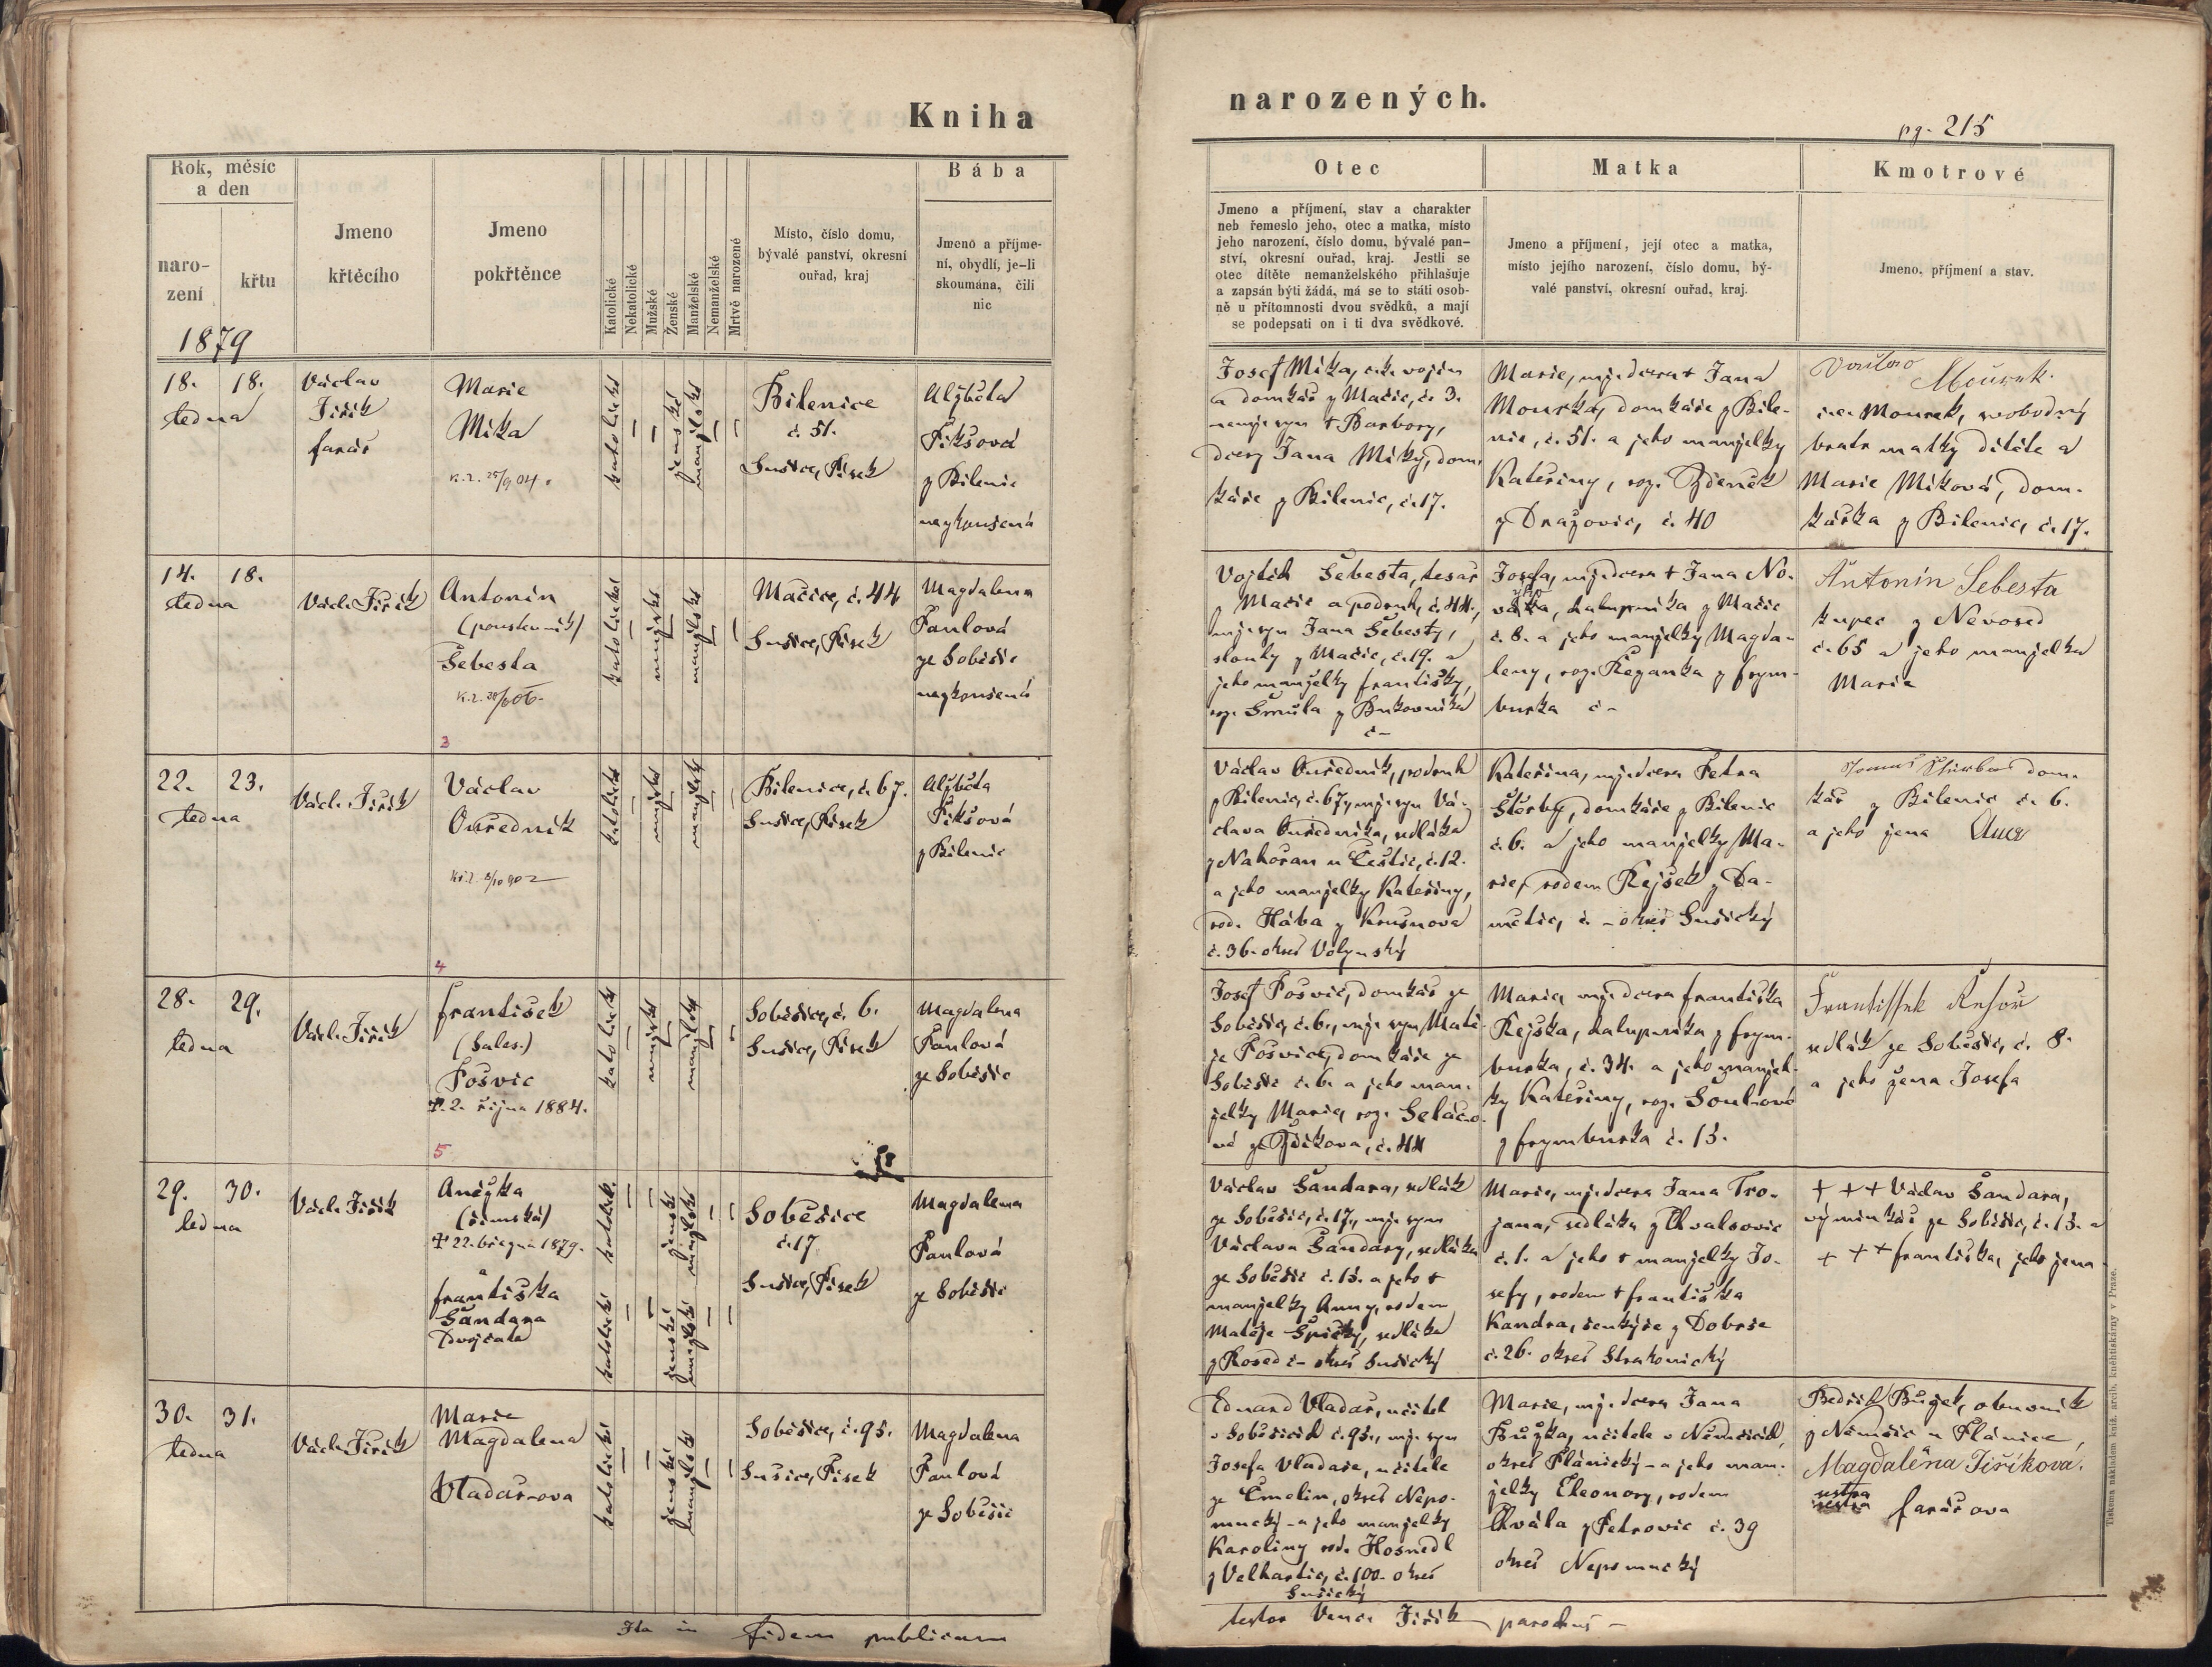 Kniha
narozených.
pg. 215
Rok, měsíc
a den
naro-
zení
křtu
1879
Jmeno
křtěcího
Jmeno
pokřtěnce
Katolické
Nekatolické
Mužské
Ženské
Manželské
Nemanželské
Mrtvě narozené
Místo, číslo domu,
bývalé panství, okresní
ouřad, kraj
Bába
Jmeno a příjme-
ní, obydlí, je-li
skoumána, čili
nic
Otec
Jmeno a příjmení, stav a charakter
neb řemeslo jeho, otec a matka, místo
jeho narození, číslo domu, bývalé pan-
ství, okresní ouřad, kraj. Jestli se
otec dítěte nemanželského přihlašuje
a zapsán býti žádá, má se to státi osob-
ně u přítomnosti dvou svědků, a mají
se podepsati on i ti dva svědkové.
Matka
Jmeno a příjmení, její otec a matka,
místo jejího narození, číslo domu, bý-
valé panství, okresní ouřad, kraj.
Kmotrové
Jmeno, příjmení a stav.
18. 18.
ledna
Václav
Jiřík
farář
Marie
Míka
katolické
ženské
manželské
Bilenice
č. 51.
Sušice, Písek
Alžběta
Pikšová
z Bilenic
nezkoušená
Josef Míka, voják
a domkář z Mačic, č. 3.
nemž. syn † Barbory,
dcery Jana Míky, dom-
káře z Bilenic, č. 17.
Marie, mž. dcera † Jana
Mourka, domkáře z Bile-
nic, č. 51. a jeho manželky
Kateřiny, roz. Zdeněk
z Dražovic, č. 40
Mourek.
Mourek, svobodný
bratr matky dítěte a
Marie Míková, dom-
kářka z Bilenic, č. 17.
14. 18.
ledna
Václ. Jiřík
Antonín
(poustevník)
Šebesta
katolické
mužské
manželské
Mačice, č. 44
Sušice, Písek
Magdalena
Paulová
ze Soběšic
nezkoušená
Vojtěch Šebesta, tesař
z Mačic a podruh, č. 44.,
mž. syn Jana Šebesty,
z Mačic, č. 19. a
jeho manželky Františky,
roz. Šmula z Bukovníka
č –
Josefa, mž. dcera † Jana No-
váka, chalupníka z Mačic
č. 8. a jeho manželky Magda-
leny, roz. z Frym-
burka č –
Antonín Šebesta
kupec z Nevosed
č. 65 a jeho manželka
Marie
3
22. 23.
ledna
Václ. Jiřík
Václav
Ouředník
katolické
mužské
manželské
Bilenice, č. 67.
Sušice, Písek
Alžběta
Pikšová
z Bilenic
Václav Ouředník, podruh
z Bilenic, č. 67, mž. syn Vá-
clava Ouředníka, sedláka
z Nahořan u Čestic, č. 12.
a jeho manželky Kateřiny,
rod. Hába z Krušnova
č. 36. okres Volynský
Kateřina, mž. dcera Petra
Štěrby, domkáře z Bilenic
č. 6. a jeho manželky Ma-
rie, rodem Rejšek z Da-
mětic, č. – okres Sušický
dom-
kář z Bilenic č. 6.
a jeho žena Anna
4
28. 29.
ledna
Václ. Jiřík
František
(Sales.)
Pošvic
†. 2. října 1884.
katolické
mužské
manželské
Soběšice, č. 6.
Sušice, Písek
Magdalena
Paulová
ze Soběšic
Josef Pošvic, domkář ze
Soběšic, č. 6., mž. syn Matě-
je Pošvice, domkáře ze
Soběšic č. 6. a jeho man-
želky Marie, roz.
ze Zdíkova, č. 44
Marie, mž. dcera Františka
Rejška, chalupníka z Frym-
burka, č. 34. a jeho manžel-
ky Kateřiny, roz.
z Frymburka č. 13.
Frantissek
sedlák ze Soběšic, č. 8.
a jeho žena Josefa
5
29. 30.
ledna
Václ. Jiřík
Anežka
(římská)
† 22. března 1879.
a
Františka
Šandera
Dvojčata
katolick.
ženské
manželské
katolické
ženské
manželské
Soběšice
č. 17
Sušice, Písek
Magdalena
Paulová
ze Soběšic
Václav Šandara, sedlák
ze Soběšic, č. 17., mž. syn
Václava Šandary, sedláka
ze Soběšic č. 13. a jeho †
manželky Anny, rodem
Matěje Špičky, sedláka
z Rosed č – okres Sušický
Marie, mž. dcera Jana Tro-
jana, sedláka z Chvalšovic
č. 1. a jeho † manželky Jo-
sefy, rodem † Františka
Kandra, šenkýře z Dobrše
č. 26. okres Strakonický
+ + + Václav Šandara,
výminkář ze Soběšic, č. 13. a
+ + + Františka, jeho žena
30. 31.
ledna
Václ. Jiřík
Marie
Magdalena
Vladař-ova
katolické
ženské
manželské
Soběšice, č. 95.
Sušice, Písek
Magdalena
Paulová
ze Soběšic
Eduard Vladař, učitel
v Soběšicích č. 95., mž. syn
Josefa Vladaře, učitele
ze Čmelin, okres Nepo-
mucký – a jeho manželky
Karoliny rod. Hosnedl
z Velhartic, č. 100. okres
Sušický
Marie, mž. dcera Jana
Bůžka, učitele v Němčicích,
okres Plánický – a jeho man-
želky Eleonory, rodem
Chvála z Petrovic č. 39
okres Nepomucký
Bedřich Bůžek, obuvník
z Němčic u Plánice,
Magdaléna Jiříkova.
sestra
farářova
Ita in fidem publicam
testor Venc. Jiřík parochus –
Tiskema nákladem kníž. arcib. kněhtiskárny v Praze.